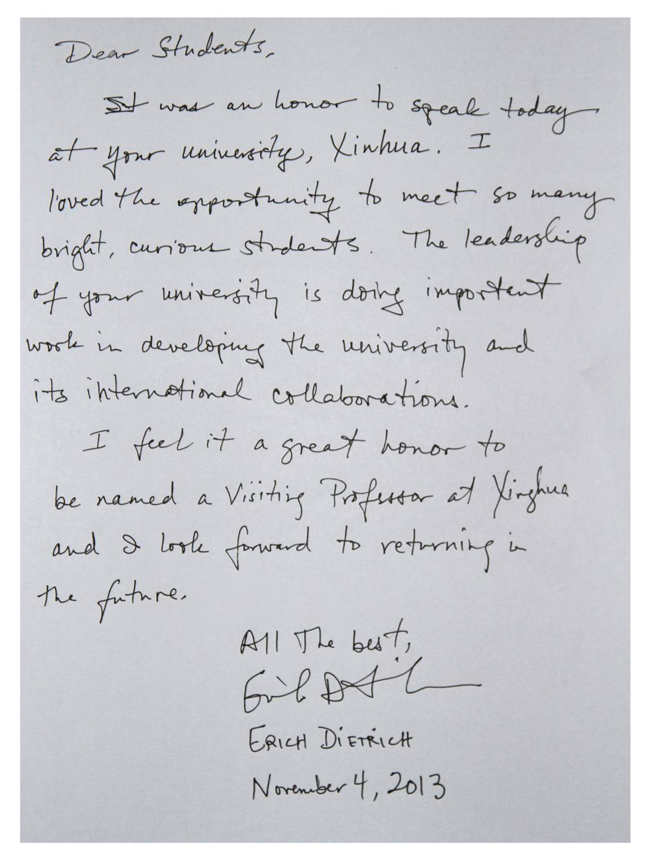 Dear Students,
It was an honor to speak today
at your university, Xinhua. I
loved the opportunity to meet so many
bright, curious students. The leadership
of your university is doing important
work in developing the university and
its international collaborations.
I feel it a great honor to
be named a Visiting Professor at Xinghua
and I look forward to returning in
the future.
All The best,
Erich Dietrich
ERICH DIETRICH
November 4, 2013